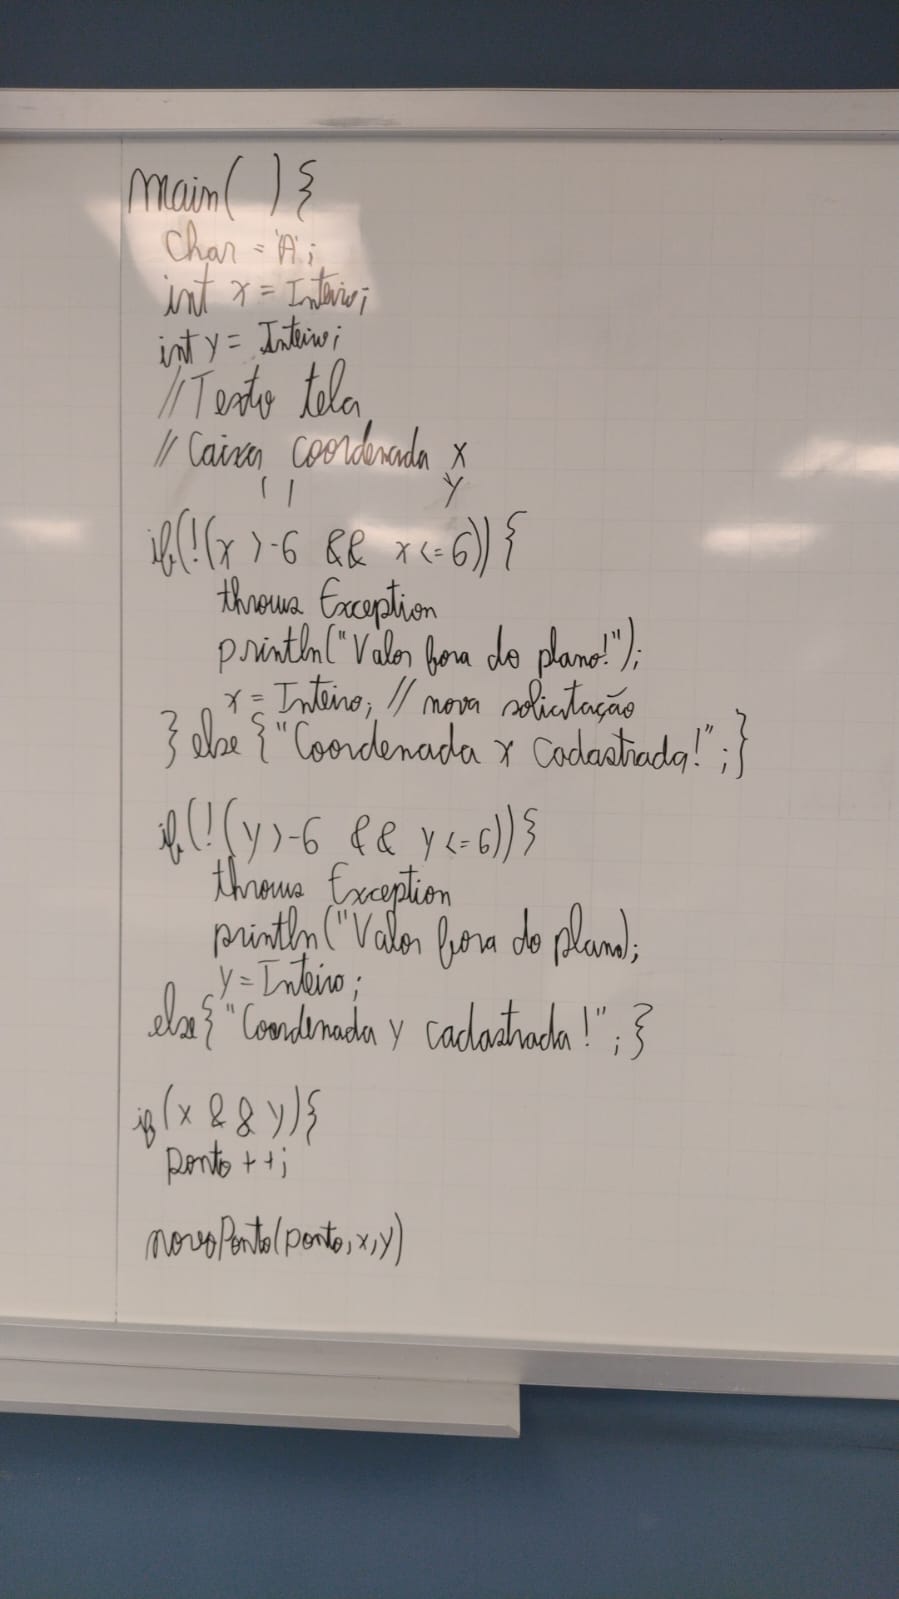 main( ) {
char = 'A';
int x = Inteiro;
int y = Inteiro;
// Texto tela
// Caixa coordenada x
( | y
if(!(x >-6 && x<=6)) {
throws Exception
println("Valor fora do plano!");
x = Inteiro; // nova solicitação
} else {"Coordenada x cadastrada!";}
if(!(y>-6 && y<=6)) }
throws Exception
println("Valor fora do plano);
y = Inteiro;
else{ "Coordenada y cadastrada!"; }
if(x && y){
ponto ++;
novoPonto(ponto,x,y)